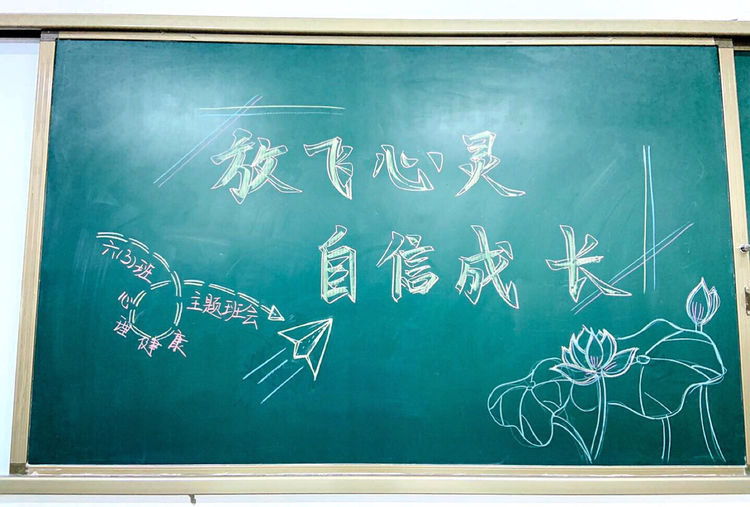 放飞心灵
自信成长
六(3)班
心理健康
主题班会